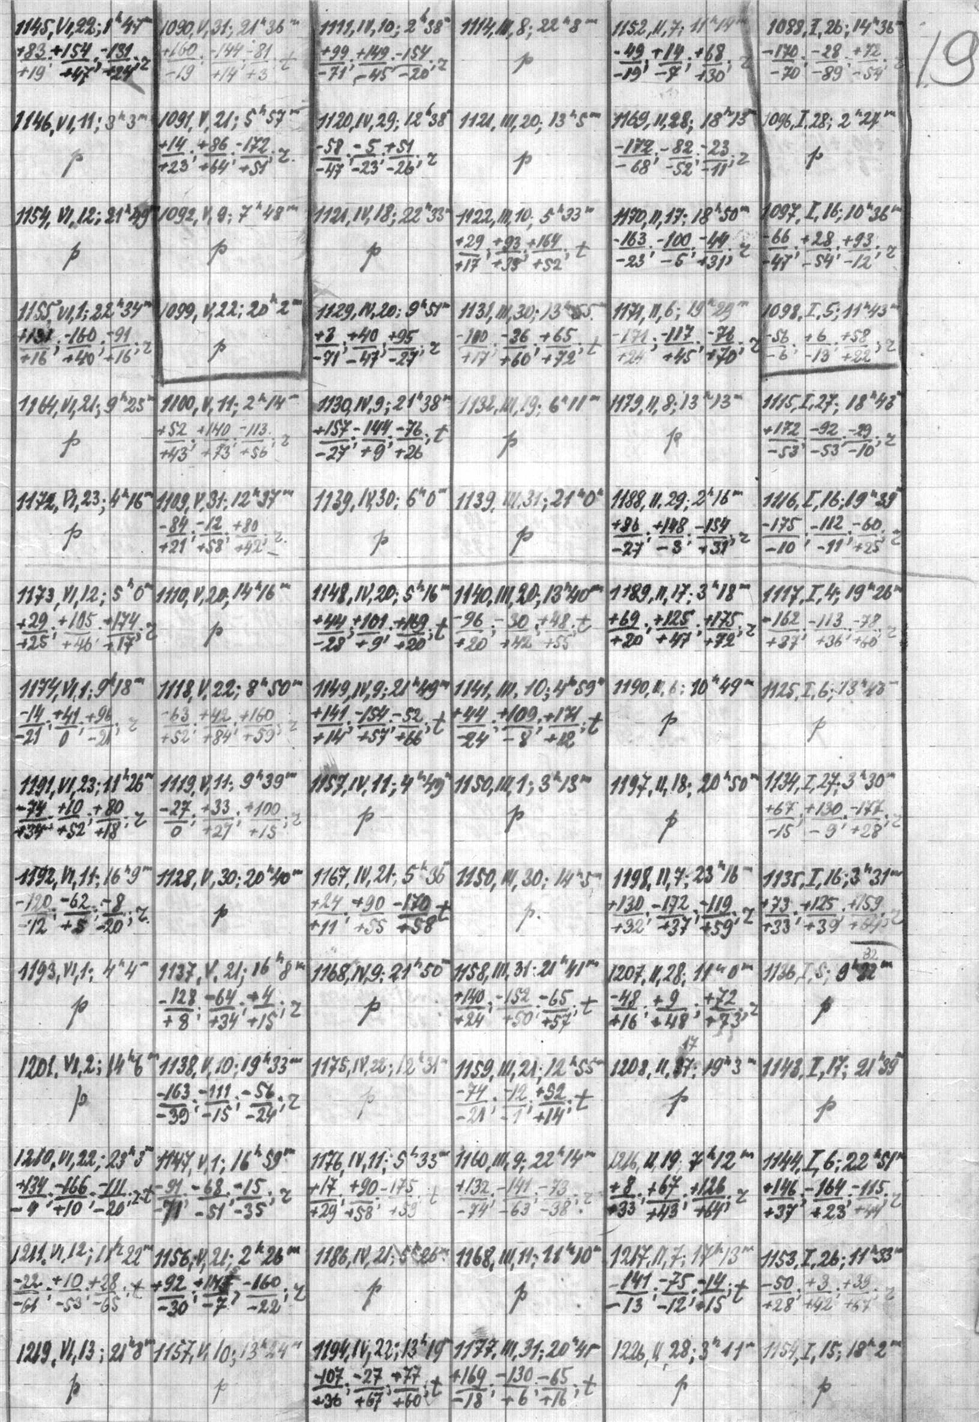 19
1145, VI, 22; 1ʰ47ᵐ
+83/+19; +154/+47; -131/+24; r
1146, VI, 11; 3ʰ3ᵐ
p
1154, VI, 12; 21ʰ49ᵐ
p
1155, VI, 1; 22ʰ34ᵐ
-160/+40; -91/+16; r
1164, VI, 21; 9ʰ23ᵐ
p
1172, VI, 23; 4ʰ16ᵐ
p
1173, VI, 12; 5ʰ0ᵐ
+29/+25; +105/+46; +174/+17; r
1174, VI, 1; 9ʰ18ᵐ
-14/-21; +41/0; +96/-21; r
1191, VI, 23; 11ʰ26ᵐ
-74/+34; +10/+52; +80/+18; r
1192, VI, 11; 16ʰ9ᵐ
-120/-12; -62/+5; -8/-20; r
1193, VI, 1; 4ʰ4ᵐ
p
1201, VI, 2; 14ʰ6ᵐ
p
1210, VI, 22; 23ʰ3ᵐ
+134/-9; -166/+10; -111/-20; r-t
1211, VI, 12; 11ʰ22ᵐ
-22/-61; +10/-53; +28/-65; t
1219, VI, 13; 21ʰ8ᵐ
p
1090, V, 31; 21ʰ36ᵐ
+160/-19; -144/+14; -81/+3; t
1091, V, 21; 5ʰ57ᵐ
+14/+23; +86/+64; -172/+51; r
1092, V, 9; 7ʰ48ᵐ
p
1099, V, 22; 20ʰ2ᵐ
p
1100, V, 11; 2ʰ14ᵐ
+52/+43; +140/+73; -113/+56; r
1109, V, 31; 12ʰ37ᵐ
-84/+21; -12/+58; +80/+42; r
1110, V, 20; 14ʰ16ᵐ
p
1118, V, 22; 8ʰ50ᵐ
-63/+52; +42/+84; +160/+59; r
1119, V, 11; 9ʰ39ᵐ
-27/0; +33/+27; +100/+15; r
1128, V, 30; 20ʰ40ᵐ
p
1137, V, 21; 16ʰ8ᵐ
-128/+8; -64/+34; +4/+15; r
1138, V, 10; 19ʰ33ᵐ
-163/-39; -111/-15; -56/-24; r
1147, V, 1; 16ʰ59ᵐ
-91/-71; -68/-51; -15/-35; r
1156, V, 21; 2ʰ26ᵐ
+92/-30; -160/-22; r
1157, V, 10; 13ʰ24ᵐ
p
1111, IV, 10; 2ʰ38ᵐ
+99/-71; +149/-45; -154/-20; r
1120, IV, 29; 12ʰ38ᵐ
-58/-47; -5/-23; +51/-26; r
1121, IV, 18; 22ʰ33ᵐ
p
1129, IV, 20; 9ʰ51ᵐ
+3/-71; +40/-47; +95/-27; r
1130, IV, 9; 21ʰ38ᵐ
+157/-27; -144/+9; -76/+26; t
1139, IV, 30; 6ʰ0ᵐ
p
1148, IV, 20; 5ʰ16ᵐ
+44/-28; +101/+9; +169/+20; t
1149, IV, 9; 21ʰ49ᵐ
+141/+14; -154/+57; -52/+66; t
1157, IV, 11; 4ʰ49ᵐ
p
1167, IV, 21; 5ʰ36ᵐ
+24/+11; +90/+55; -170/+58; t
1168, IV, 9; 21ʰ50ᵐ
p
1175, IV, 22; 12ʰ31ᵐ
p
1176, IV, 11; 5ʰ33ᵐ
+17/+29; +90/+58; -175/+53; t
1186, IV, 21; 5ʰ26ᵐ
p
1194, IV, 22; 13ʰ19ᵐ
-107/+36; -27/+67; +77/+60; t
1114, III, 8; 22ʰ8ᵐ
p
1121, III, 20; 13ʰ5ᵐ
p
1122, III, 10; 5ʰ33ᵐ
+29/+17; +93/+33; +164/+52; t
1131, III, 30; 13ʰ55ᵐ
-100/+17; -36/+60; +65/+72; t
1132, III, 19; 6ʰ11ᵐ
p
1139, III, 31; 21ʰ0ᵐ
p
1140, III, 20; 13ʰ40ᵐ
-96/+20; -30/+42; +48/+55; t
1141, III, 10; 4ʰ59ᵐ
+44/-24; +109/-8; +171/+12; t
1150, III, 1; 3ʰ13ᵐ
p
1150, III, 30; 14ʰ5ᵐ
p
1158, III, 31; 21ʰ41ᵐ
+140/+24; -152/+50; -65/+57; t
1159, III, 21; 12ʰ55ᵐ
-74/-21; -12/-1; +52/+14; t
1160, III, 9; 22ʰ14ᵐ
+132/-74; -141/-63; -73/-38; r
1168, III, 11; 11ʰ10ᵐ
p
1177, III, 31; 20ʰ41ᵐ
+169/-18; -130/+6; -65/+16; t
1152, II, 7; 11ʰ14ᵐ
-49/-19; +14/-7; +68/+30; r
1169, II, 28; 18ʰ13ᵐ
-172/-68; -82/-52; -23/-11; r
1170, II, 17; 18ʰ50ᵐ
-163/-23; -100/-5; -44/+31; r
1171, II, 6; 19ʰ29ᵐ
-171/+24; -117/+45; -76/+70; r
1179, II, 8; 13ʰ13ᵐ
p
1188, II, 29; 2ʰ16ᵐ
+86/-27; +148/-3; -154/+31; r
1189, II, 17; 3ʰ18ᵐ
+69/+20; +125/+47; +175/+72; r
1190, II, 6; 10ʰ49ᵐ
p
1197, II, 18; 20ʰ50ᵐ
p
1198, II, 7; 23ʰ16ᵐ
+130/+32; -172/+37; -119/+59; r
1207, II, 28; 11ʰ0ᵐ
-48/+16; +9/+48; +72/+73; r
17
1208, II, 17; 19ʰ3ᵐ
p
1216, II, 19; 7ʰ12ᵐ
+8/+33; +67/+43; +126/+64; r
1217, II, 7; 17ʰ13ᵐ
-141/-13; -75/-12; -14/+15; t
1226, II, 28; 3ʰ11ᵐ
p
1088, I, 26; 14ʰ36ᵐ
-170/-70; -28/-89; +72/-54; r
1096, I, 28; 2ʰ27ᵐ
p
1097, I, 16; 10ʰ36ᵐ
-66/-47; +28/-54; +93/-12; r
1098, I, 5; 11ʰ43ᵐ
-56/-6; +6/-13; +58/+22; r
1115, I, 27; 18ʰ43ᵐ
+172/-53; -92/-53; -29/-10; r
1116, I, 16; 19ʰ39ᵐ
-175/-10; -112/-11; -60/+25; r
1117, I, 4; 19ʰ26ᵐ
-162/+37; -113/+36; -78/+60; r
1125, I, 6; 13ʰ43ᵐ
p
1134, I, 27; 3ʰ30ᵐ
+67/-15; +130/-9; -177/+28; r
1135, I, 16; 3ʰ31ᵐ
+73/+33; +125/+39; +159/+64; r
32
1136, I, 5; 9ʰ32ᵐ
p
1143, I, 17; 21ʰ39ᵐ
p
1144, I, 6; 22ʰ51ᵐ
+146/+37; -164/+23; -115/+44; r
1153, I, 26; 11ʰ33ᵐ
-50/+28; +3/+42; +39/+67; r
1154, I, 15; 18ʰ2ᵐ
p